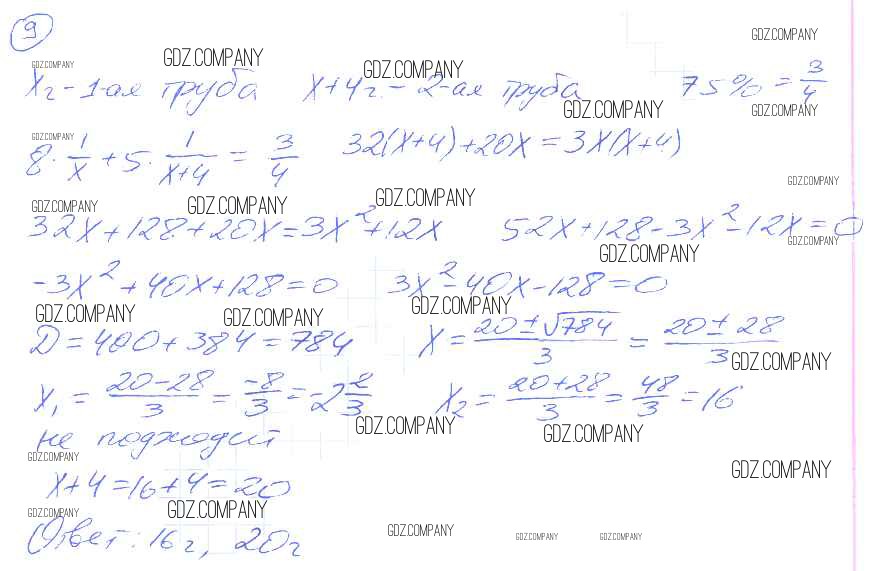 9
GDZ.COMPANY GDZ.COMPANY GDZ.COMPANY GDZ.COMPANY
Xч - 1-ая труба X+4ч. - 2-ая труба 75% = 3/4
GDZ.COMPANY GDZ.COMPANY
GDZ.COMPANY
8 · 1/X + 5 · 1/(X+4) = 3/4 32(X+4)+20X=3X(X+4)
GDZ.COMPANY
GDZ.COMPANY GDZ.COMPANY GDZ.COMPANY
32X+128+20X=3X²+12X 52X+128-3X²-12X=0
GDZ.COMPANY GDZ.COMPANY
-3X²+40X+128=0 3X²-40X-128=0
GDZ.COMPANY GDZ.COMPANY GDZ.COMPANY
D=400+384=784 X = (20±√784)/3 = (20±28)/3
GDZ.COMPANY
X₁ = (20-28)/3 = -8/3 = -2 2/3 X₂ = (20+28)/3 = 48/3 = 16
GDZ.COMPANY GDZ.COMPANY
не подходит
GDZ.COMPANY GDZ.COMPANY
X+4=16+4=20
GDZ.COMPANY GDZ.COMPANY
Ответ: 16ч, 20ч
GDZ.COMPANY GDZ.COMPANY GDZ.COMPANY